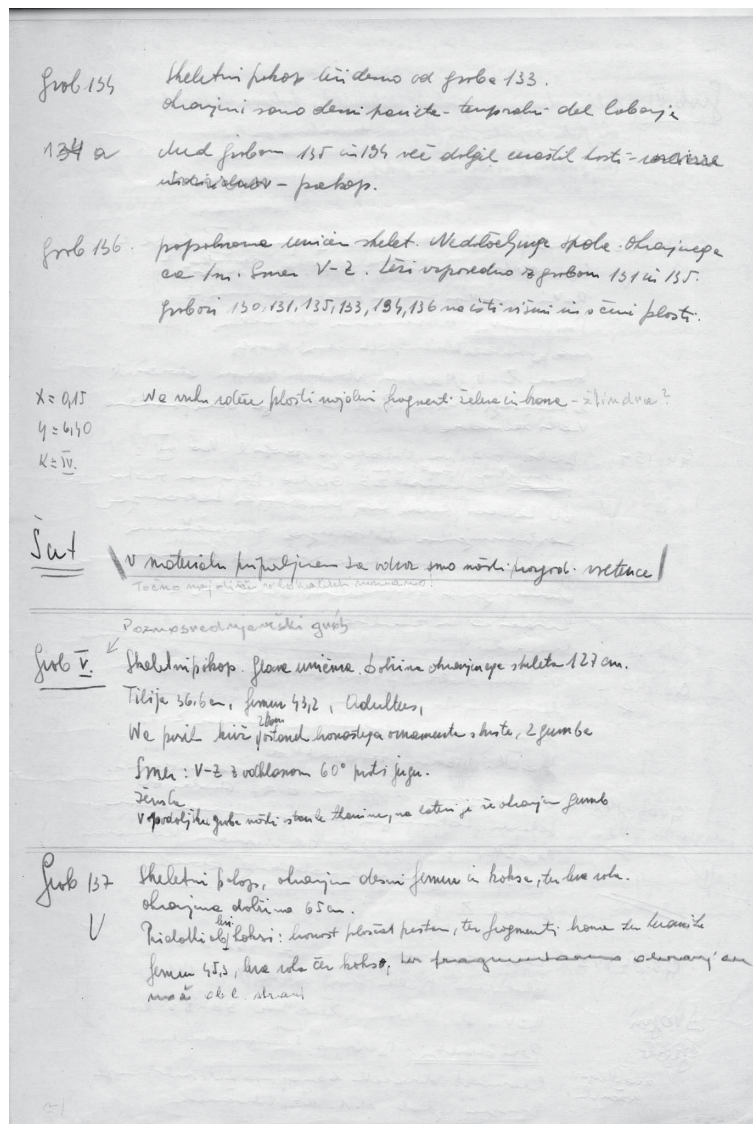 Grob 134 Skeletni pokop leži desno od groba 133.
Ohranjeni samo desni parieto-temporalni del lobanje
134 a Med grobom 135 in 134 več dolgih mostil kosti -
- pokop.
Grob 136. popolnoma uničen skelet. Nedoločljivega spola. Ohranjenega
ca 1m. Smer V-Z. Leži vzporedno z grobom 131 in 135.
Grobovi 130, 131, 135, 133, 134, 136 na isti višini in v črni plasti.
X = 0,15 Na vrhu rdeče plasti najdeni fragmenti železa in brona - žlindra?
Y = 6,40
K = IV.
Šut V materialu pripravljenem za odvoz smo našli vretence
Točno najdišče
Poznosrednjeveški grob
Grob V. Skeletni pokop. Glava uničena. Dolžina ohranjenega skeleta 127 cm.
Tibija 36,6 cm, femur 43,2, Adultus,
Na prsih križ, ostanek bronastega ornamenta s krste, 2 gumba
Smer: V-Z z odklonom 60° proti jugu.
Ženska
V podaljšku groba našli ostanke tkanine, na kateri je še ohranjen gumb
Grob 137 Skeletni pokop, ohranjen desni femur in koksa, ter leva roka.
Ohranjena dolžina 65 cm.
V Pridatki ob levi koksi: bronast ploščat prstan, ter fragmenti brona ter keramike
femur 45,3, leva roka čez kokso, ter fragmentarno ohranjen
nož ob l. strani